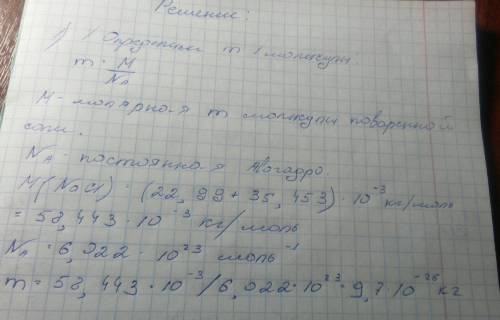 Решение:
1) Определим m 1 молекулы:
m = M
NA
M - молярная m молекулы поваренной
соли.
NA - постоянная Авогадро.
M(NaCl) = (22,99 + 35,453) · 10⁻³ кг/моль
= 58,443 · 10⁻³ кг/моль
NA = 6,022 · 10²³ моль⁻¹
m = 58,443 · 10⁻³ / 6,022 · 10²³ = 9,7 · 10⁻²⁶ кг